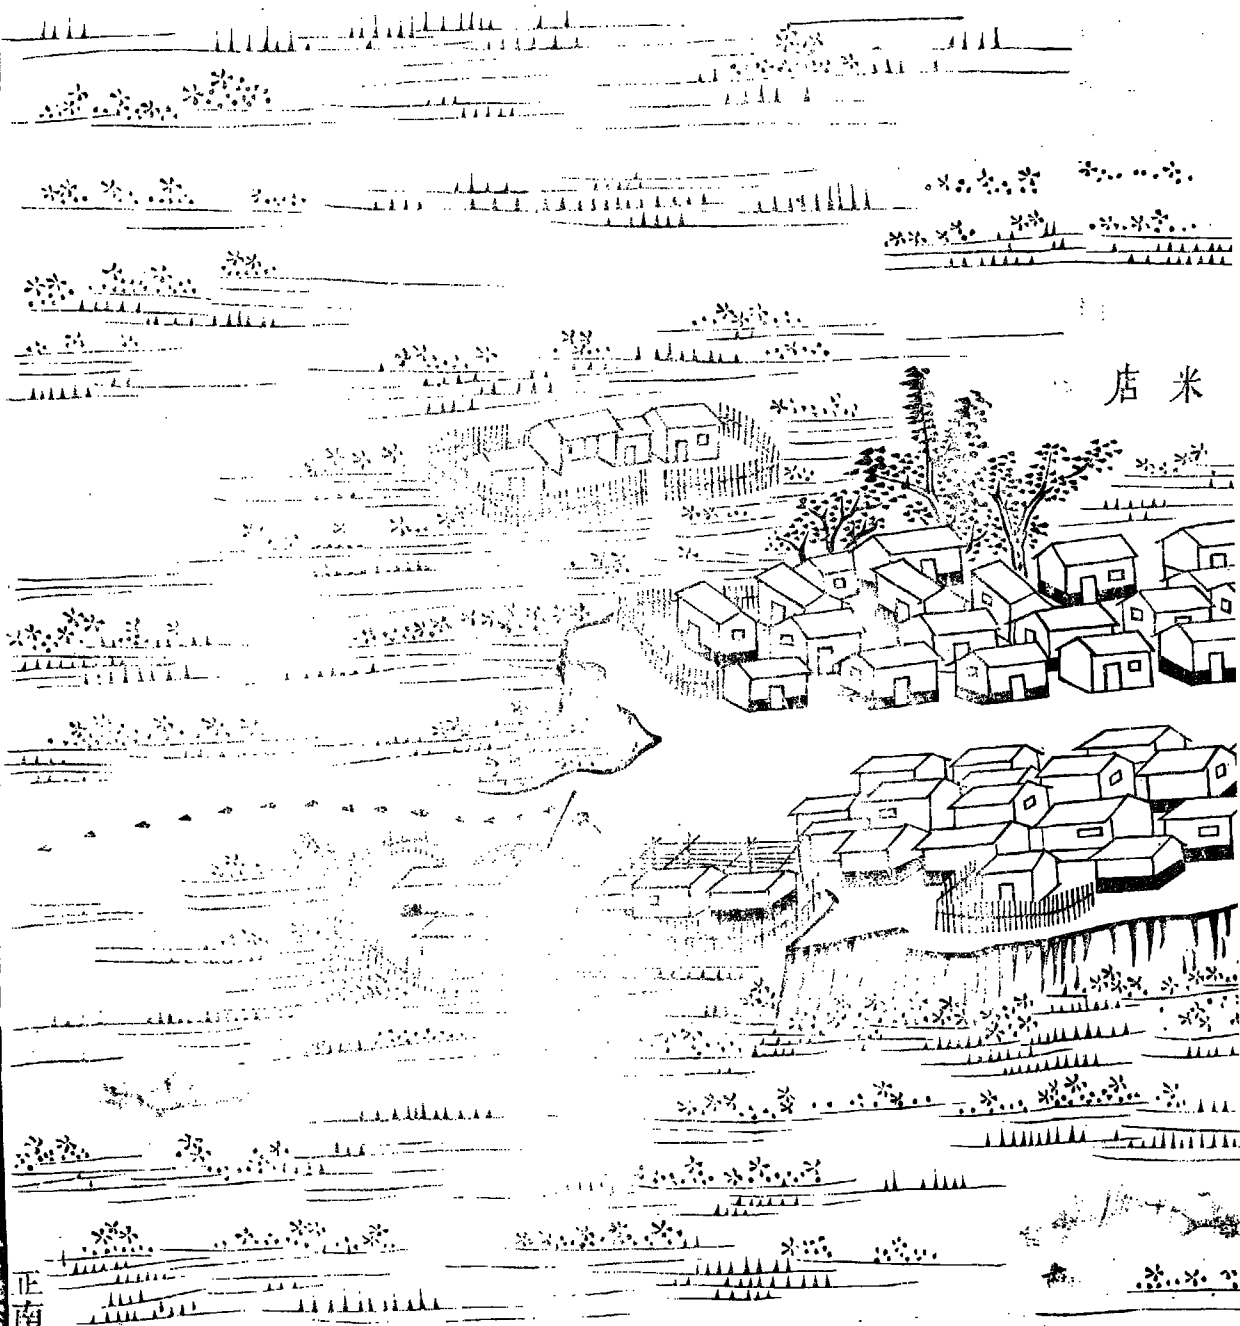 米店
正南